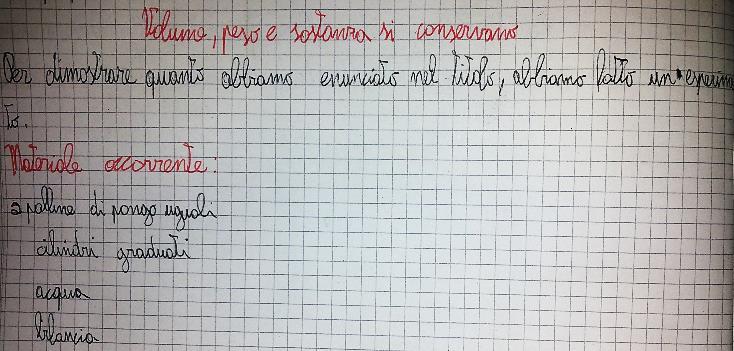 Volume, peso e sostanza si conservano
Per dimostrare quanto abbiamo enunciato nel titolo, abbiamo fatto un esperimen
to.
Materiale occorrente:
2 palline di pongo uguali
cilindri graduati
acqua
bilancia